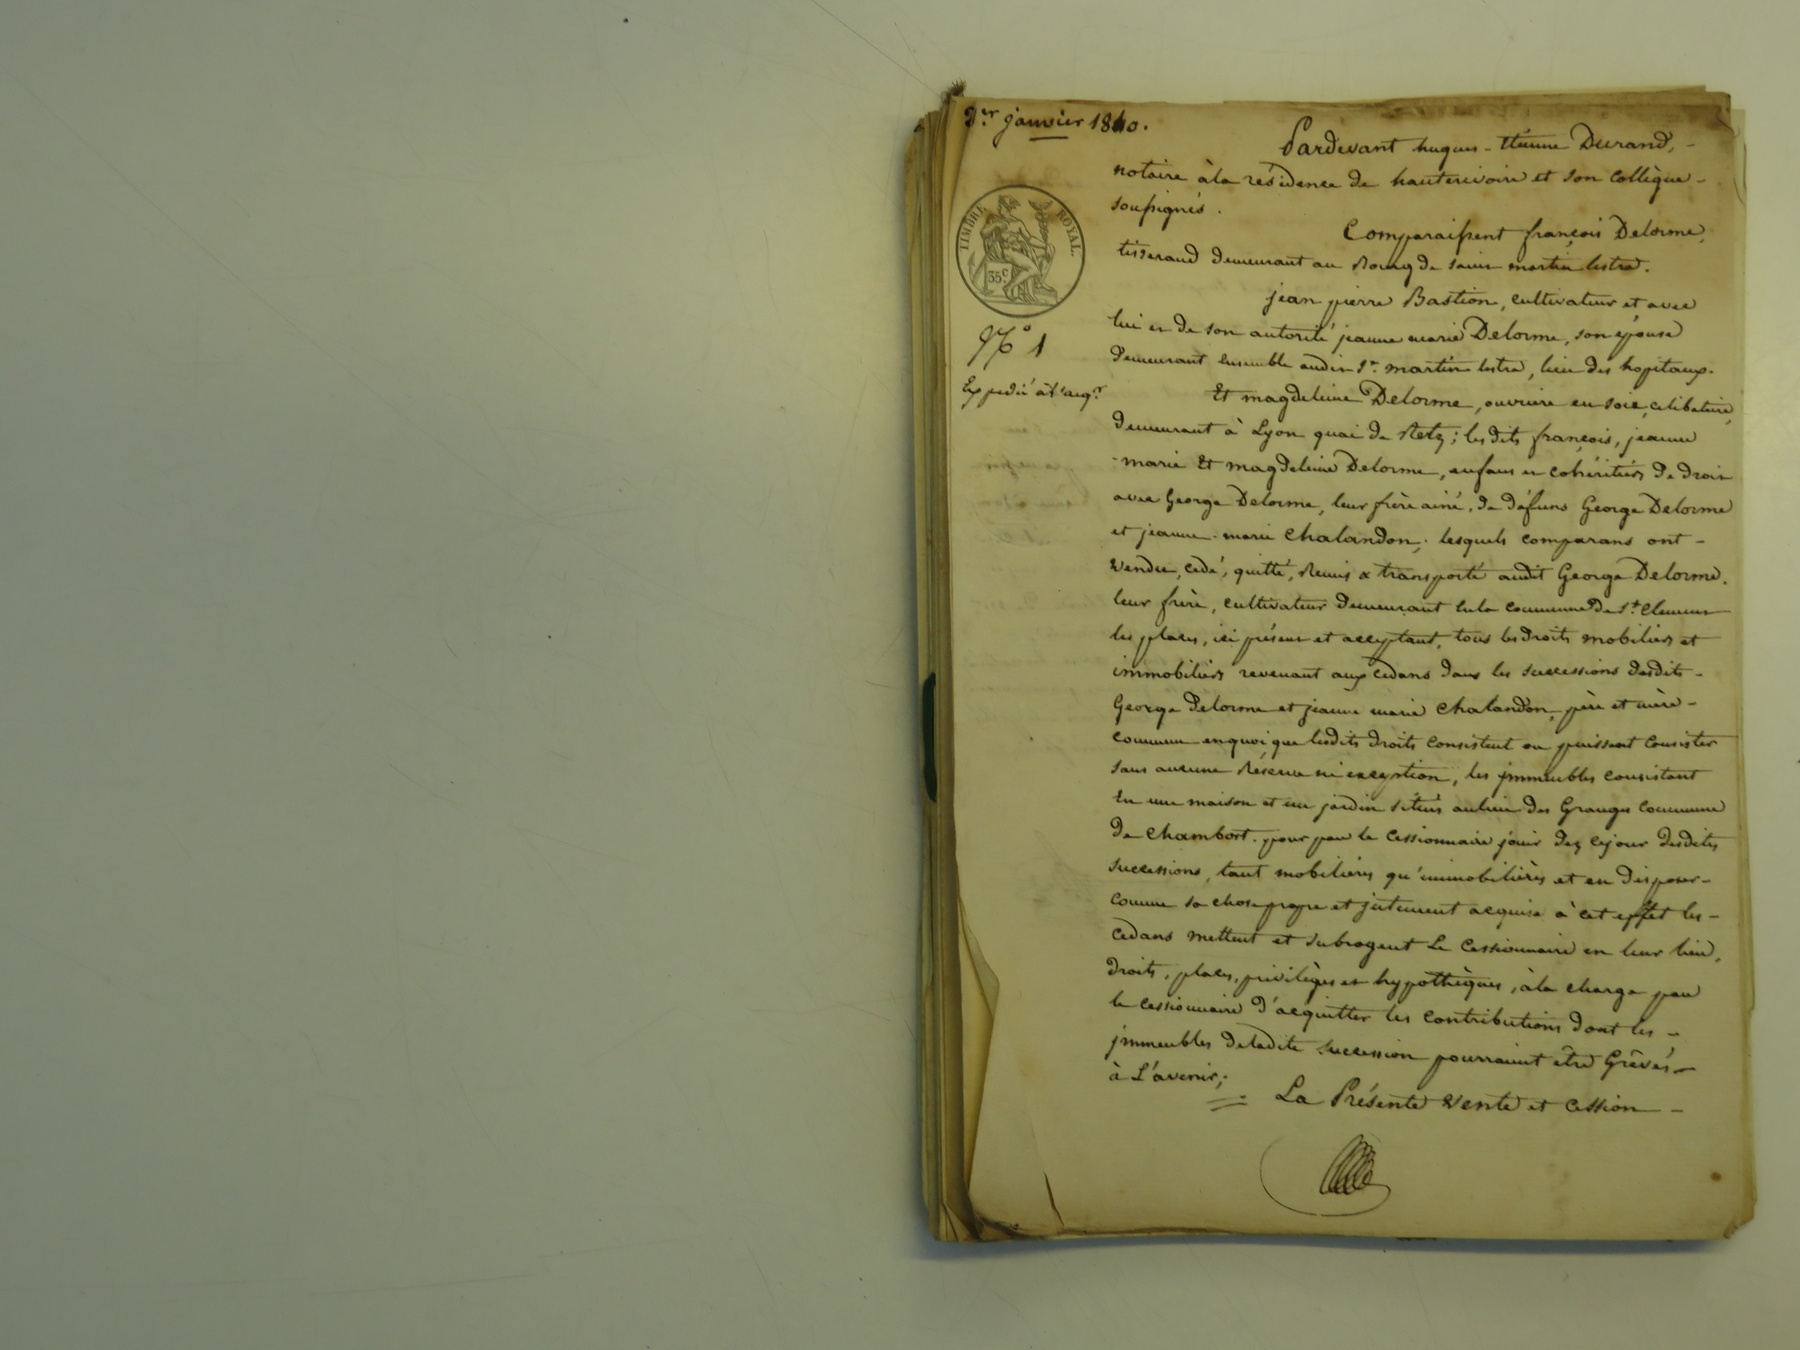 1er janvier 1840.
TIMBRE ROYAL.
35 c
No 1
Expédié à l'acqr
Pardevant hugues - Etienne Durand, -
notaire à la résidence de hauterivoire et son collègue -
soussignés.
Comparaissent françois Delorme,
tisserand demeurant au Bourg de saint martin lestra.
jean pierre Bastion, cultivateur et avec
lui et de son autorité jeanne marie Delorme, son épouse
demeurant ensemble audit St. martin lestra, lieu des hopitaux.
Et magdeleine Delorme, ouvrière en soie, celibataire,
demeurant à Lyon quai de Retz; lesdits françois, jeanne
-marie Et magdeleine Delorme, enfans et cohéritiers de droit
avec George Delorme, leur frère ainé, de défunts George Delorme
et jeanne-marie Chalandon; lesquels comparans ont -
vendu, cédé, quitté, Remis & transporté audit George Delorme.
leur frère, cultivateur demeurant en la commune de St. Clement
les places, ici présent et acceptant, tous les droits mobiliers et
immobiliers revenant aux cedans dans les successions desdits -
George Delorme et jeanne marie Chalandon, père et mère -
commun en quoi que lesdits droits consistent ou puissent consister
sans aucune Réserve ni exception, les jmmeubles consistant
En une maison et un jardin situés au lieu des Granges commune
de Chambost. pour par le cessionnaire jouir dez cejour desdites
successions, tant mobilières qu'immobilières et en disposer -
comme sa chose propre et justement acquise à cet effet les -
cedans mettent et subrogent Le cessionnaire en leur lieu,
droits, places, privilèges et hypothèques, à la charge par
le cessionnaire d'acquitter les contributions dont les -
jmmeubles deladite succession pourraient être Grêvés -
à L'avenir;
La Présente vente et cession -